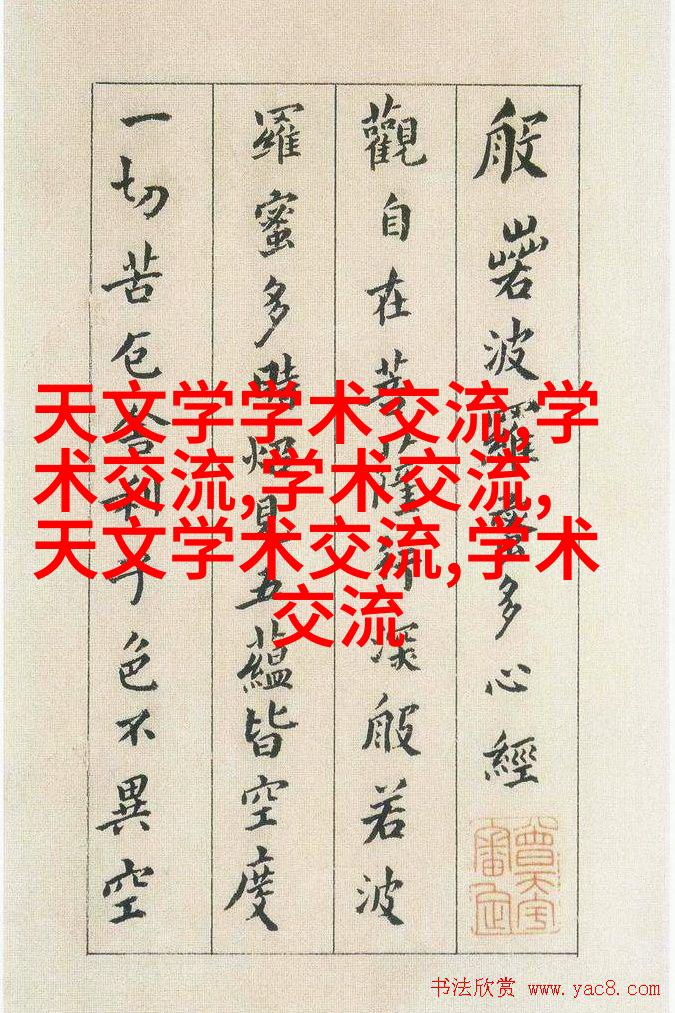 般若波羅蜜多心經
觀自在菩薩行深般若波
羅蜜多時照見五蘊皆空度
一切苦厄舍利子色不異空
天文学学术交流,学
术交流,学术交流,
天文学术交流,学术
交流
书法欣赏 www.yac8.com